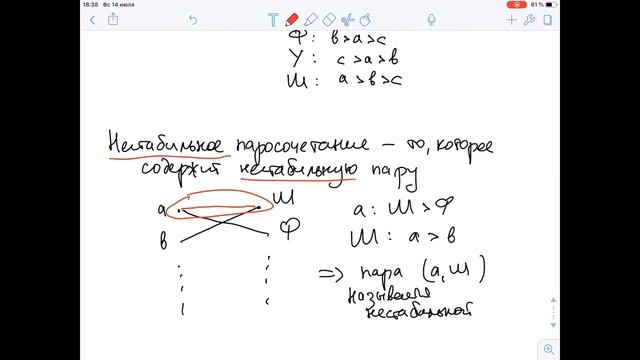 18:38 Вс 14 июля
61 %
Ф: в>а>с
У: с>а>в
Ш: а>в>с
Нестабильное паросочетание – то, которее
содержит нестабильную пару
а Ш а: Ш>Ф
в Ф Ш: а>в
=> пара (а, Ш)
называется
нестабильной